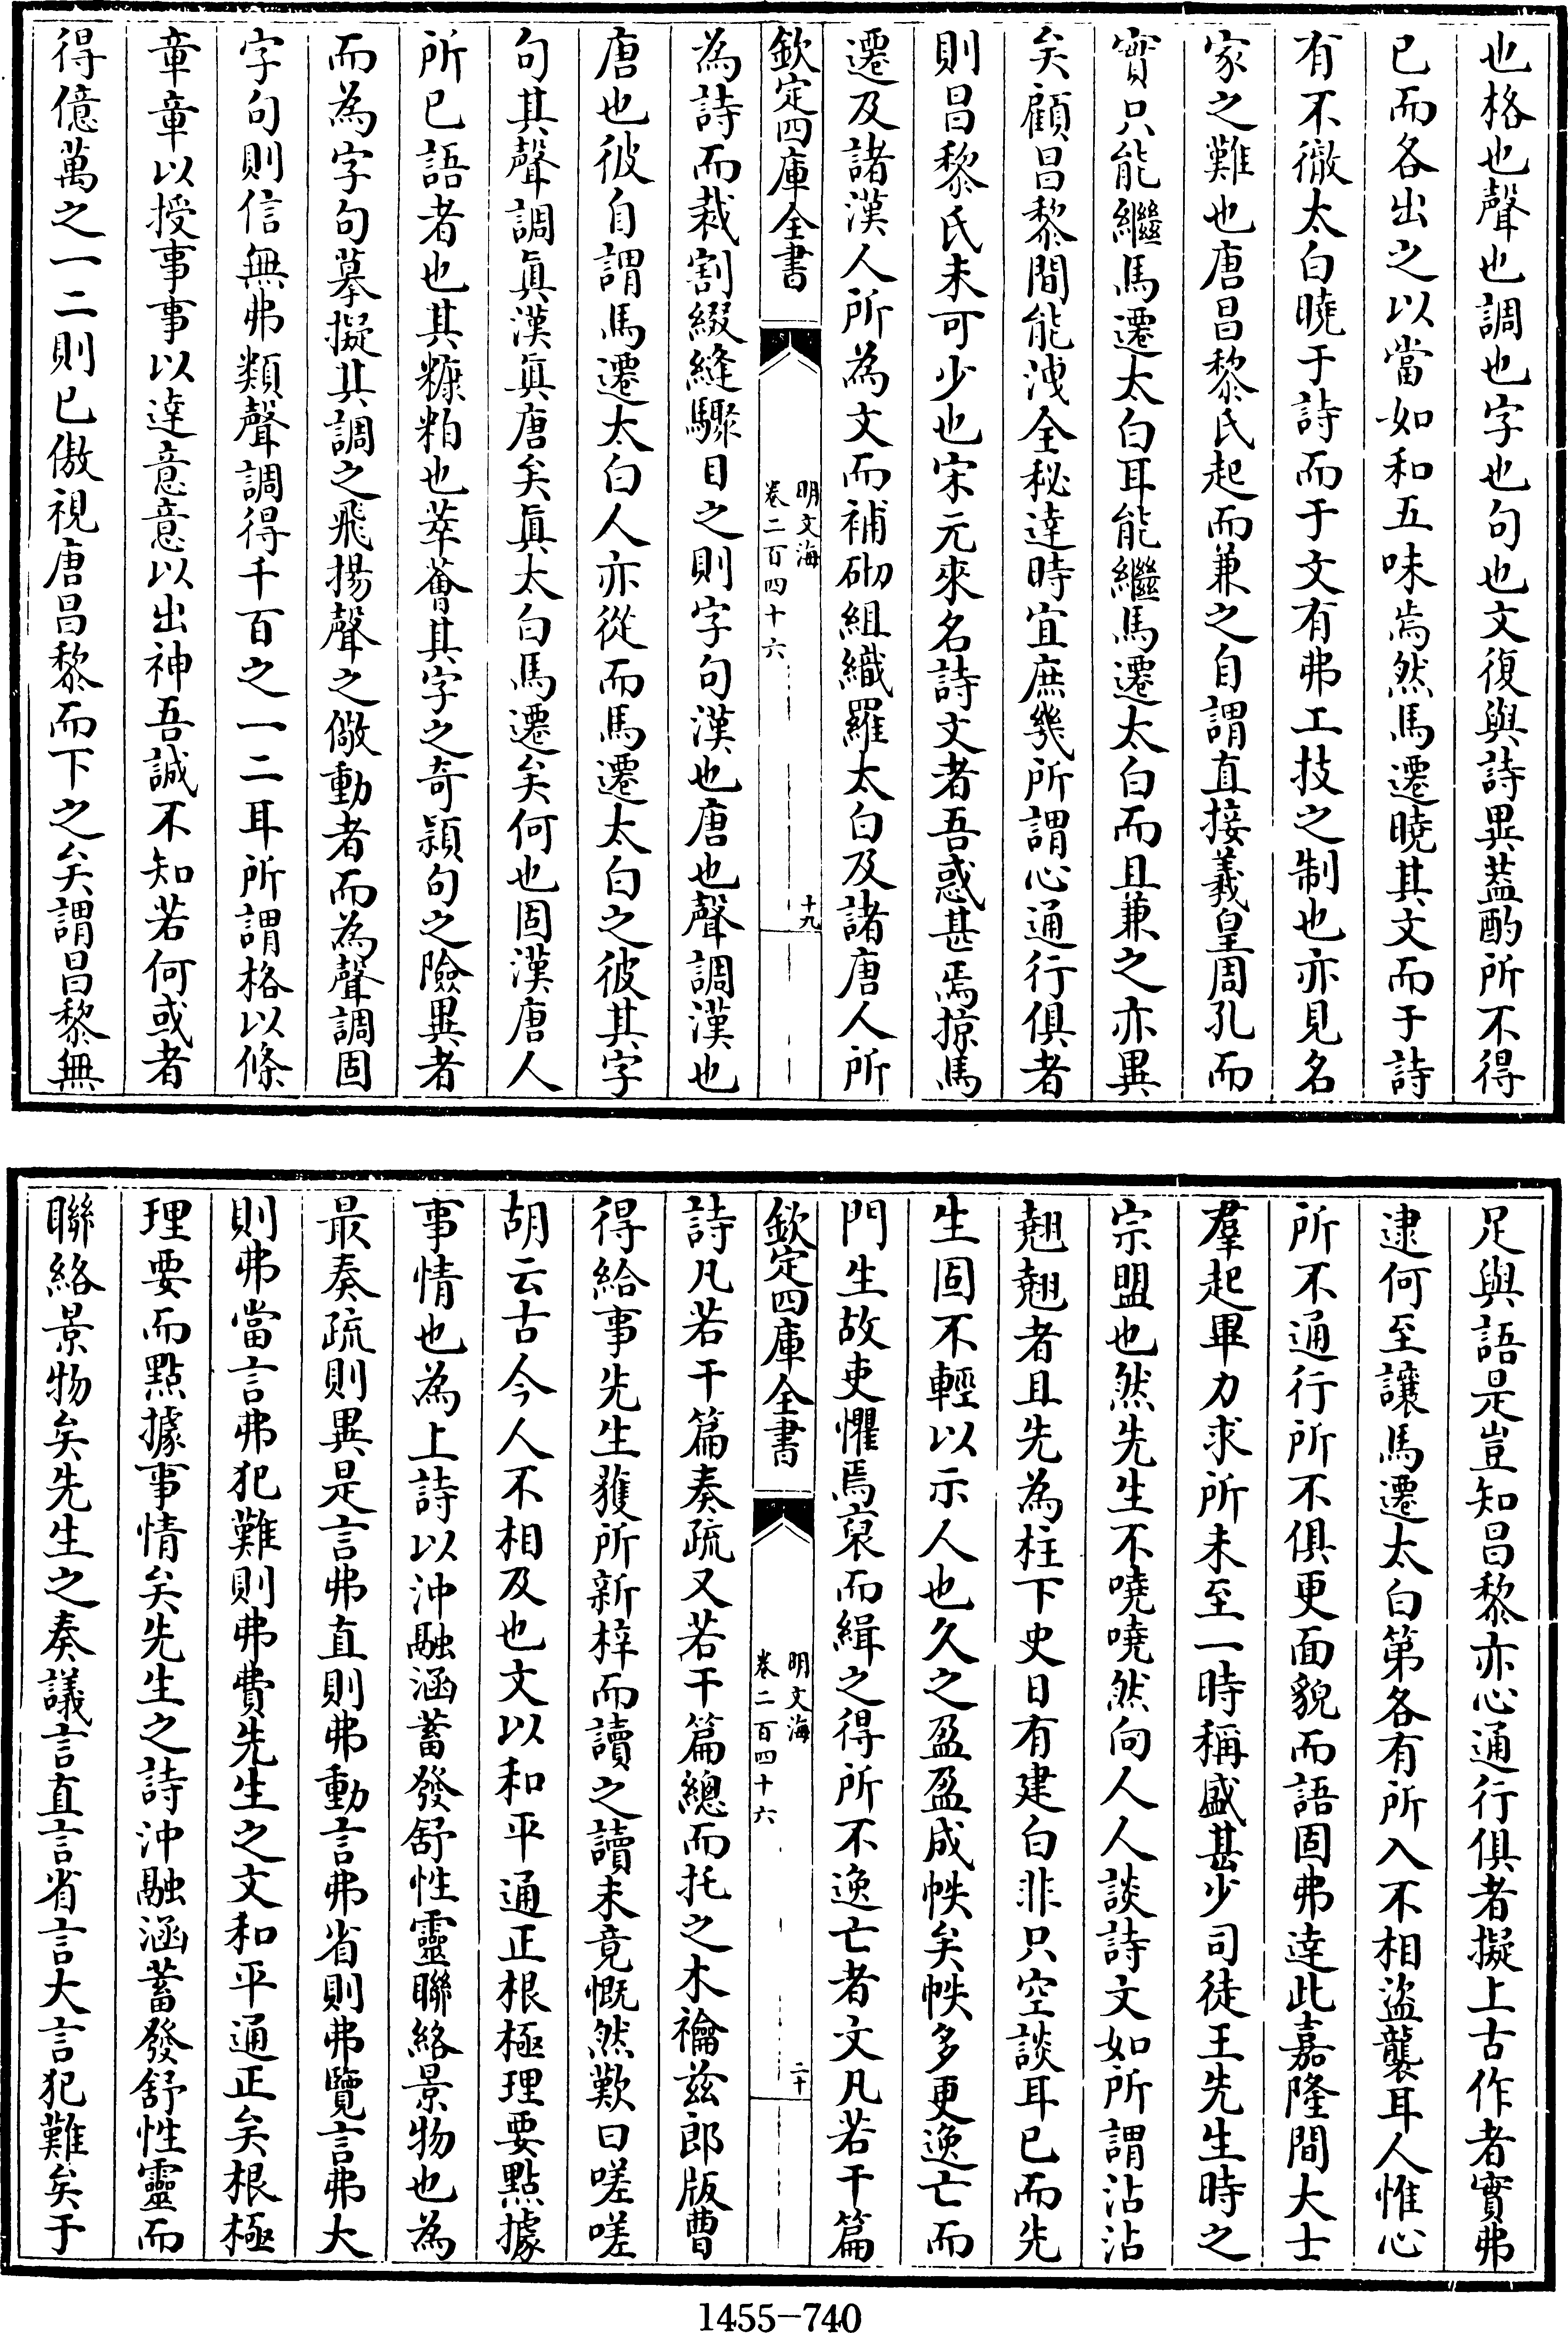 也格也聲也調也字也句也文復與詩異葢酌所不得
已而各出之以當如和五味焉然馬遷曉其文而于詩
有不徹太白曉于詩而于文有弗工技之制也亦見名
家之難也唐昌黎氏起而兼之自謂直接羲皇周孔而
實只能繼馬遷太白耳能繼馬遷太白而且兼之亦異
矣顧昌黎間能洩全秘達時宜庶幾所謂心通行俱者
則昌黎氏未可少也宋元來名詩文者吾惑甚焉掠馬
遷及諸漢人所為文而補砌組織羅太白及諸唐人所
欽定四庫全書
明文海
卷二百四十六
十九
為詩而裁割綴縫驟目之則字句漢也唐也聲調漢也
唐也彼自謂馬遷太白人亦從而馬遷太白之彼其字
句其聲調真漢真唐矣真太白馬遷矣何也固漢唐人
所已語者也其糠粕也萃薈其字之奇潁句之險異者
而為字句摹擬其調之飛揚聲之儆動者而為聲調固
字句則信無弗類聲調得千百之一二耳所謂格以條
章章以授事事以達意意以出神吾誠不知若何或者
得億萬之一二則已傲視唐昌黎而下之矣謂昌黎無
足與語是豈知昌黎亦心通行俱者擬上古作者實弗
逮何至讓馬遷太白第各有所入不相盜襲耳人惟心
所不通行所不俱更面貌而語固弗達此嘉隆間大士
羣起畢力求所未至一時稱盛甚少司徒王先生時之
宗盟也然先生不嘵嘵然向人人談詩文如所謂沾沾
翹翹者且先為柱下史日有建白非只空談耳已而先
生固不輕以示人也久之盈盈成帙矣帙多更逸亡而
門生故吏懼焉裒而緝之得所不逸亡者文凡若干篇
欽定四庫全書
明文海
卷二百四十六
二十
詩凡若干篇奏疏又若干篇總而托之木禴兹郎版曹
得給事先生獲所新梓而讀之讀未竟慨然歎曰嗟嗟
胡云古今人不相及也文以和平通正根極理要點據
事情也為上詩以沖融涵蓄發舒性靈聯絡景物也為
最奏疏則異是言弗直則弗動言弗省則弗覽言弗大
則弗當言弗犯難則弗費先生之文和平通正矣根極
理要而點據事情矣先生之詩沖融涵蓄發舒性靈而
聯絡景物矣先生之奏議言直言省言大言犯難矣于
1455-740